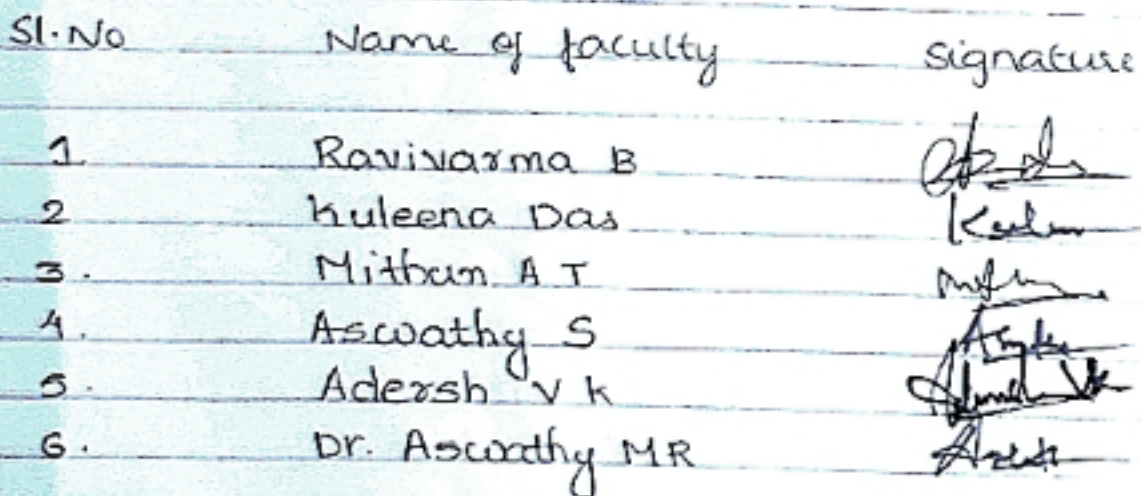 Sl.No Name of faculty Signature
1 Ravivarma B
2 Kuleena Das
3. Mithun A T
4. Aswathy S
5. Adersh V K
6. Dr. Aswathy MR